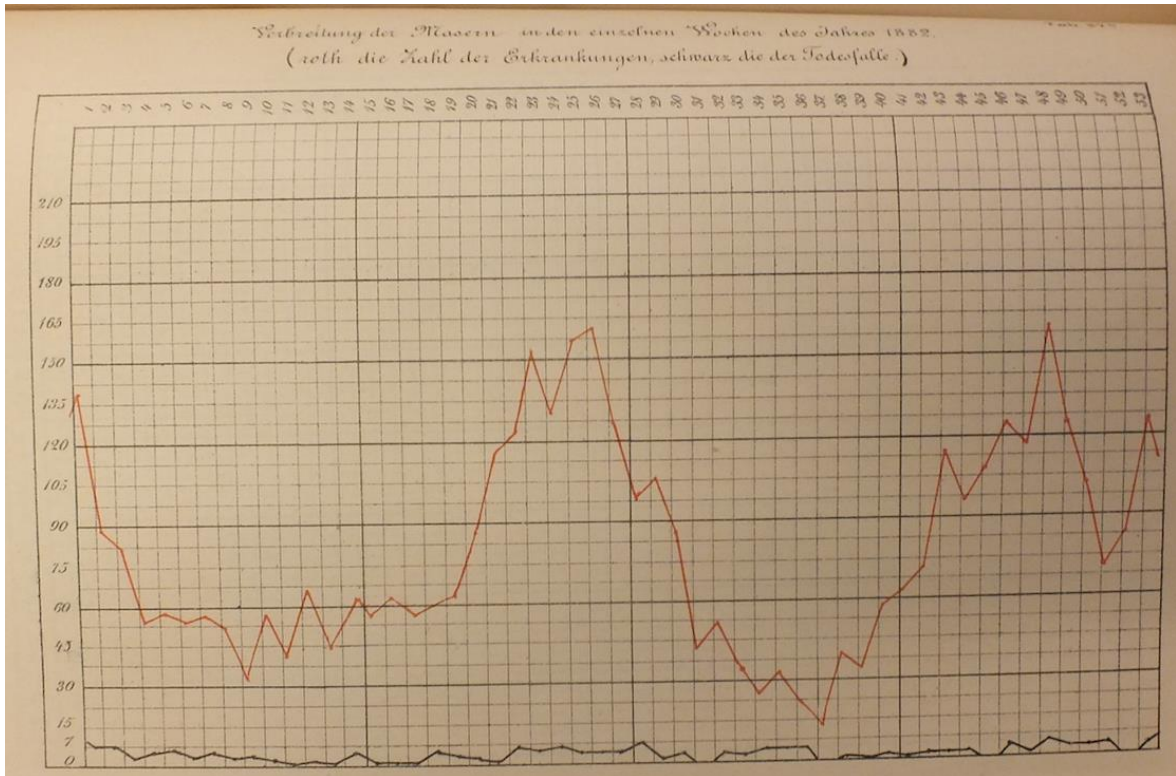 Verbreitung der Masern in den einzelnen Wochen des Jahres 1882.
(roth die Zahl der Erkrankungen, schwarz die der Todesfälle.)
1 2 3 4 5 6 7 8 9 10 11 12 13 14 15 16 17 18 19 20 21 22 23 24 25 26 27 28 29 30 31 32 33 34 35 36 37 38 39 40 41 42 43 44 45 46 47 48 49 50 51 52 53
210
195
180
165
150
135
120
105
90
75
60
45
30
15
7
0